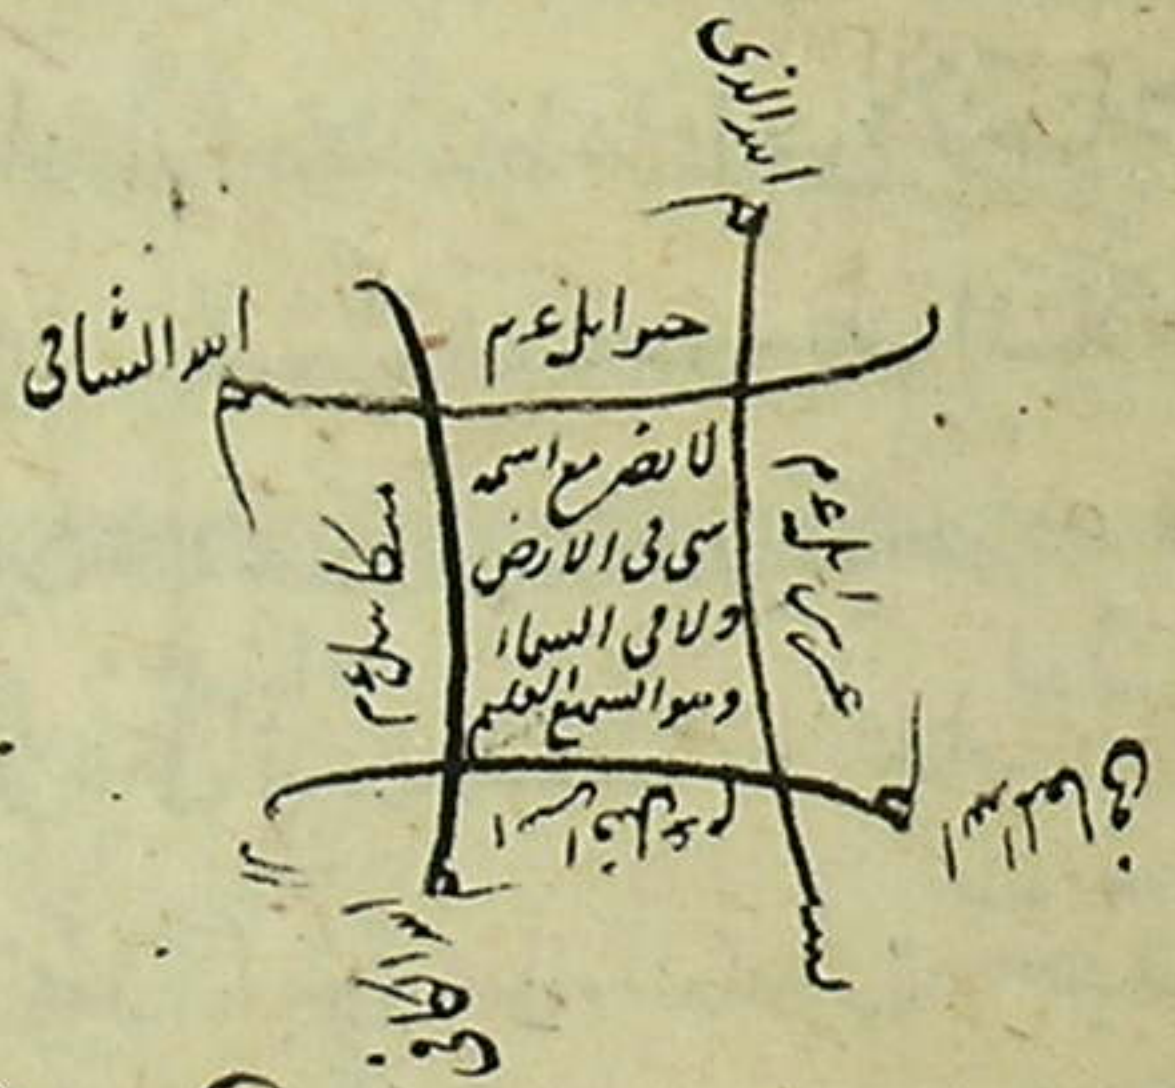 الله الذى
الله الشافى
جبرايل ع م
لا يضر مع اسمه
شى فى الارض
ولا فى السماء
وهو السميع العليم
ميكاييل ع م
عزرايل ع م
اسرافيل ع م
الله المعافى
الله الكافى